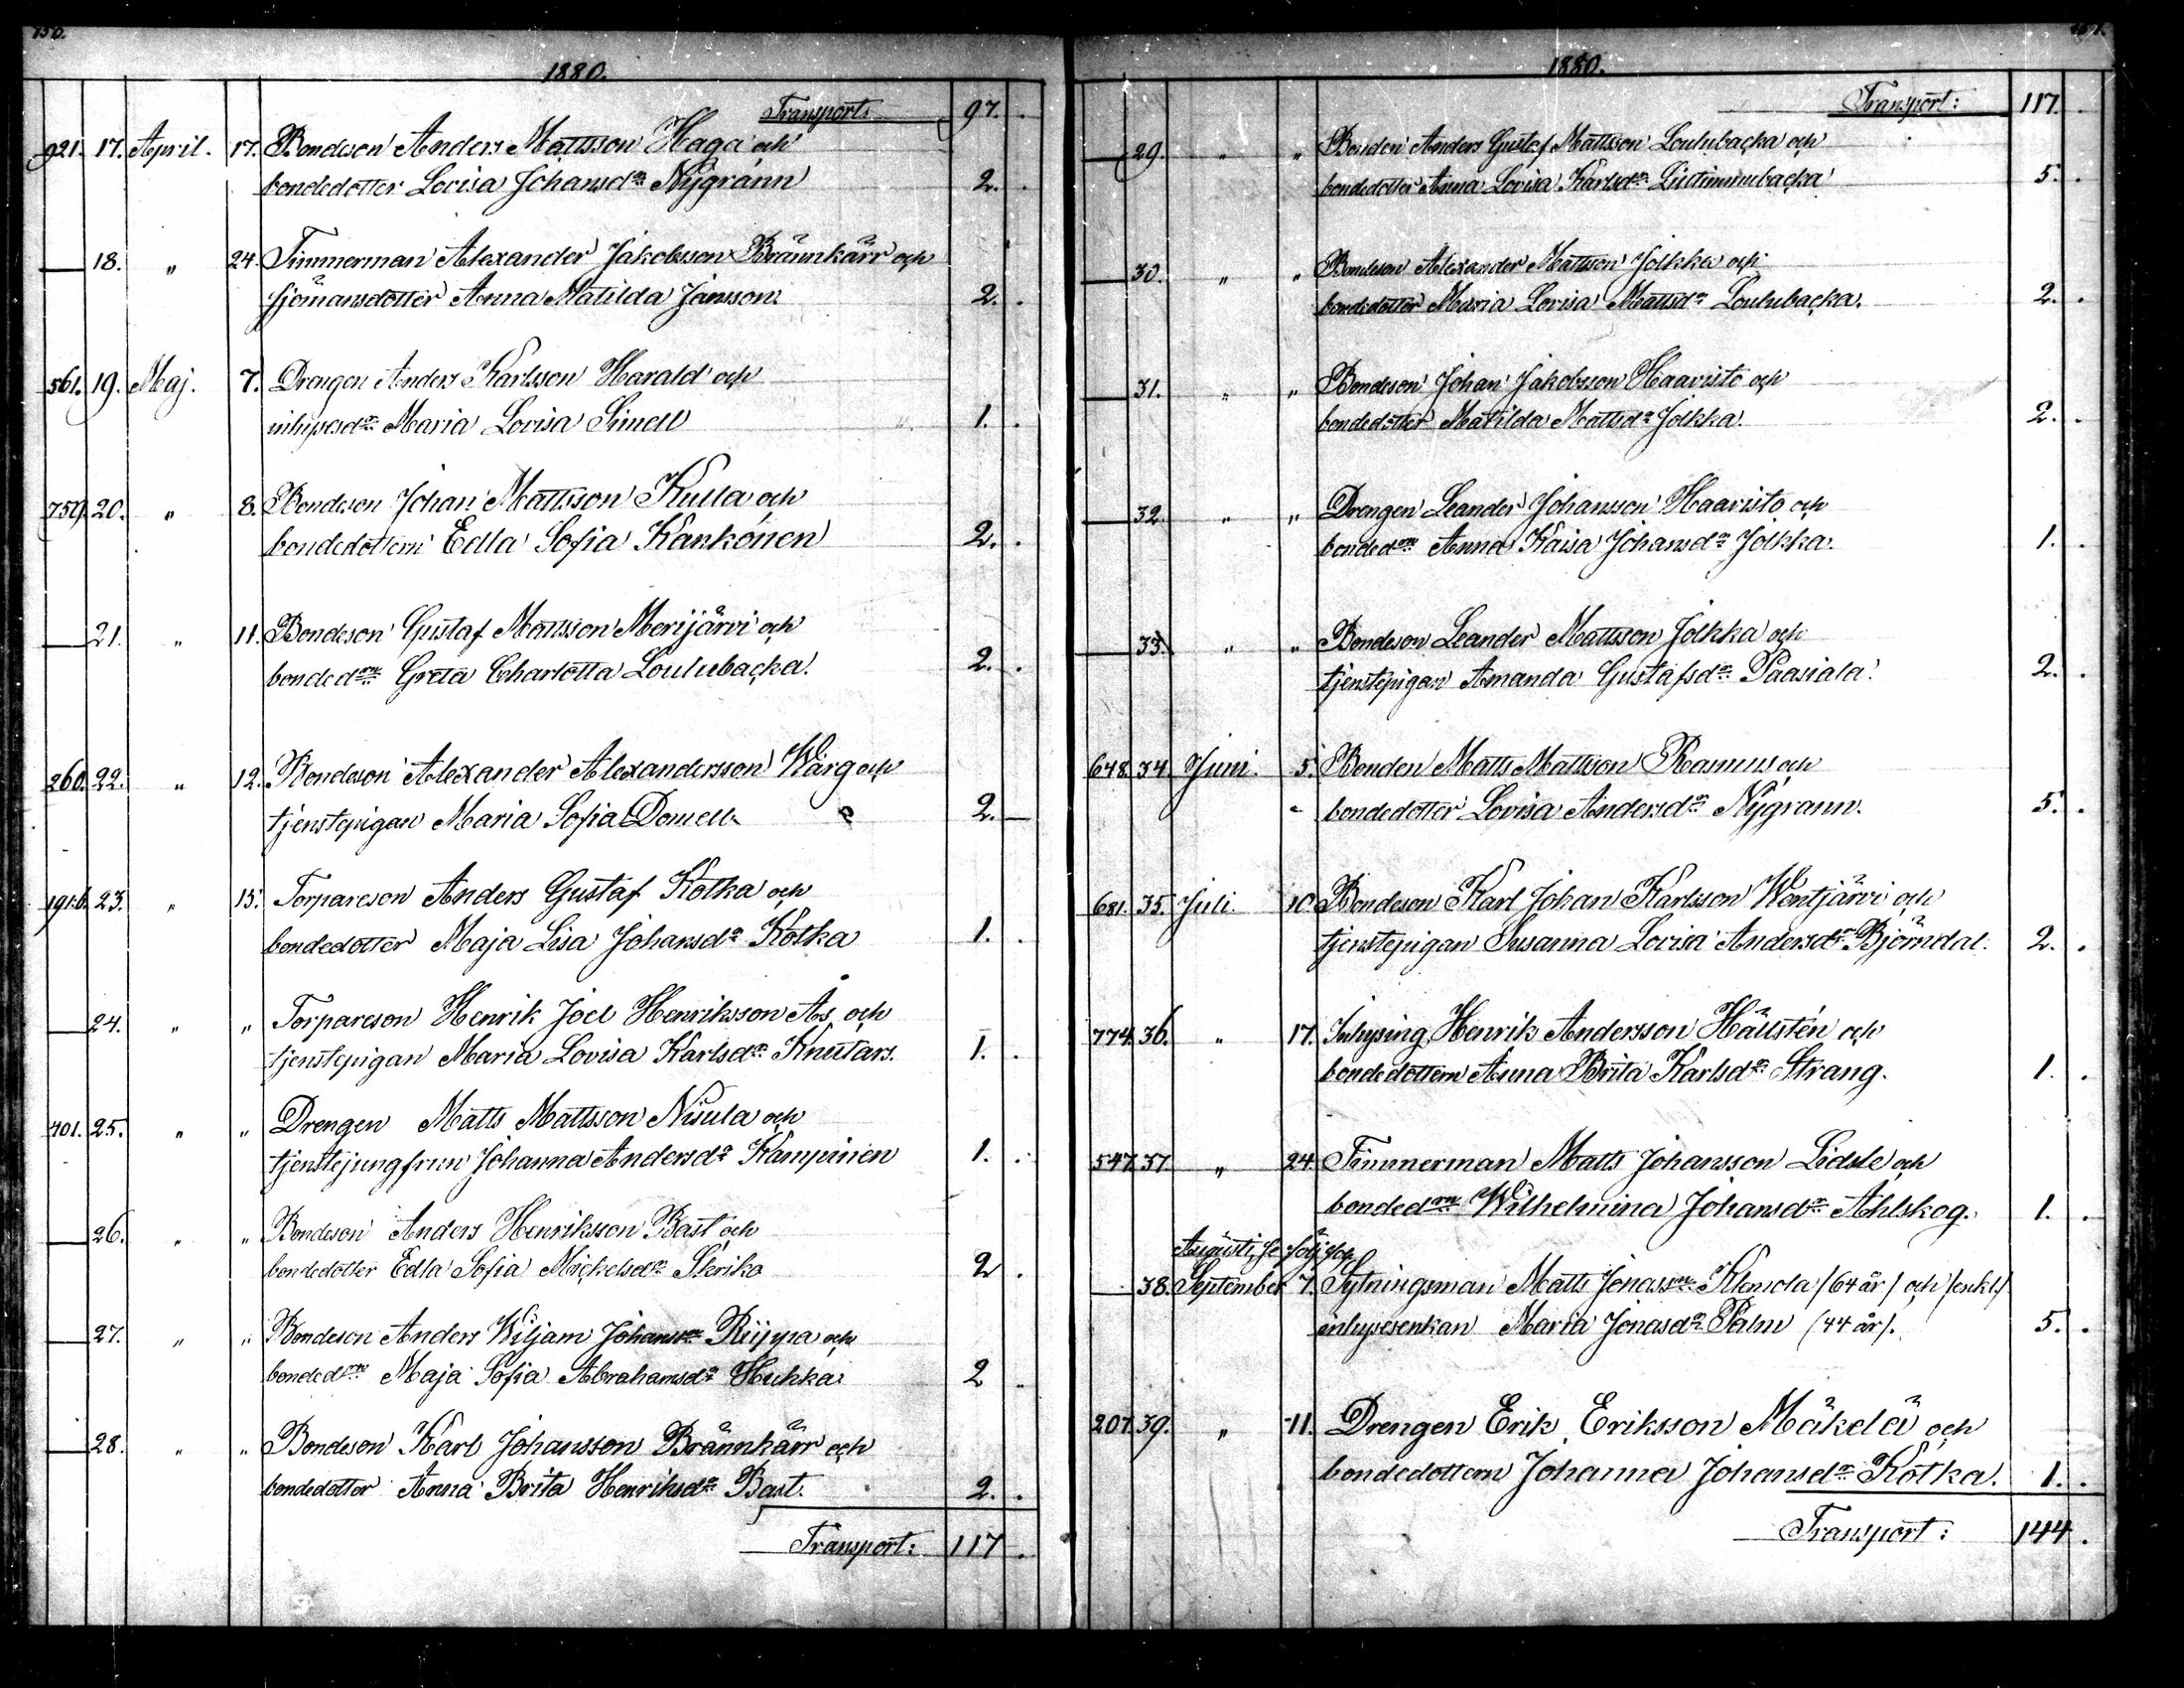 156.
1880.
Transport: 97.
921. 17. April. 17. Bondeson Anders Mattsson Haga och
bondedotter Lovisa Johansdr Nygrann 2.
18. " 24. Timmerman Alexander Jakobsson Brännkärr och
sjömansdotter Anna Matilda Jansson. 2.
561. 19. Maj. 7. Drengen Anders Karlsson Harald och
inhysesdr Maria Lovisa Simell 1.
759. 20. " 8. Bondeson Johan Mattsson Kulla och
bondedottern Edla Sofia Kankonen 2.
21. " 11. Bondeson Gustaf Mattsson Merijärvi och
bondedrn Greta Charlotta Loulubacka. 2.
260. 22. " 12. Bondeson Alexander Alexandersson Warg och
tjenstepigan Maria Sofia Donell. 2.
191.b. 23. " 15. Torpareson Anders Gustaf Kotka och
bondedotter Maja Lisa Johansdr Kotka 1.
24. " " Torpareson Henrik Joel Henriksson Ås och
tjenstepigan Maria Lovisa Karlsdr Knutars. 1.
401. 25. " " Drengen Matts Mattsson Nisula och
tjenstejungfrun Johanna Andersdr Kampinen 1.
26. " " Bondeson Anders Henriksson Bast och
bondedotter Edla Sofia Mickelsdr Skriko 2
27. " " Bondeson Anders Wiljam Johanssn Riippa och
bondedrn Maja Sofia Abrahamsdr Huhka. 2
28. " " Bondeson Karl Johansson Brännkärr och
bondedotter Anna Brita Henriksdr Bast. 2.
Transport: 117.
157.
1880.
Transport: 117.
29. " " Bonden Anders Gustaf Mattsson Loulubacka och
bondedotter Anna Lovisa Karlsdr 5.
30. " " Bondeson Alexander Mattsson Jolkka och
bondedotter Maria Lovisa Mattsdr Loulubacka. 2.
31. " " Bondeson Johan Jakobsson Haavisto och
bondedotter Matilda Mattsdr Jolkka. 2.
32. " " Drengen Leander Johansson Haavisto och
bondedrn Anna Kaisa Johansdr Jolkka. 1.
33. " " Bondeson Leander Mattsson Jolkka och
tjenstepigan Amanda Gustafsdr Paasiala. 2.
648. 34. Juni. 5. Bonden Matts Mattsson Rasmus och
bondedotter Lovisa Andersdr Nygrann. 5.
681. 35. Juli. 10. Bondeson Karl Johan Karlsson Wentjärvi och
tjenstepigan Susanna Lovisa Andersdr Björndal. 2.
774. 36. " 17. Inhysing Henrik Andersson Hällstén och
bondedottern Anna Brita Karlsdr Strang. 1.
547. 37. " 24. Timmerman Matts Johansson Lidste och
bondedrn Wilhelmina Johansdr Åhlskog. 1.
Augusti, se följ. sid.
38. September 7. Sytningsman Matts Jonassn Klemola (64 år) och (enkl.)
inhysesenkan Maria Jonasdr Palm (44 år). 5.
207. 39. " 11. Drengen Erik Eriksson Mäkelä och
bondedottern Johanna Johansdr Kotka. 1.
Transport: 144.